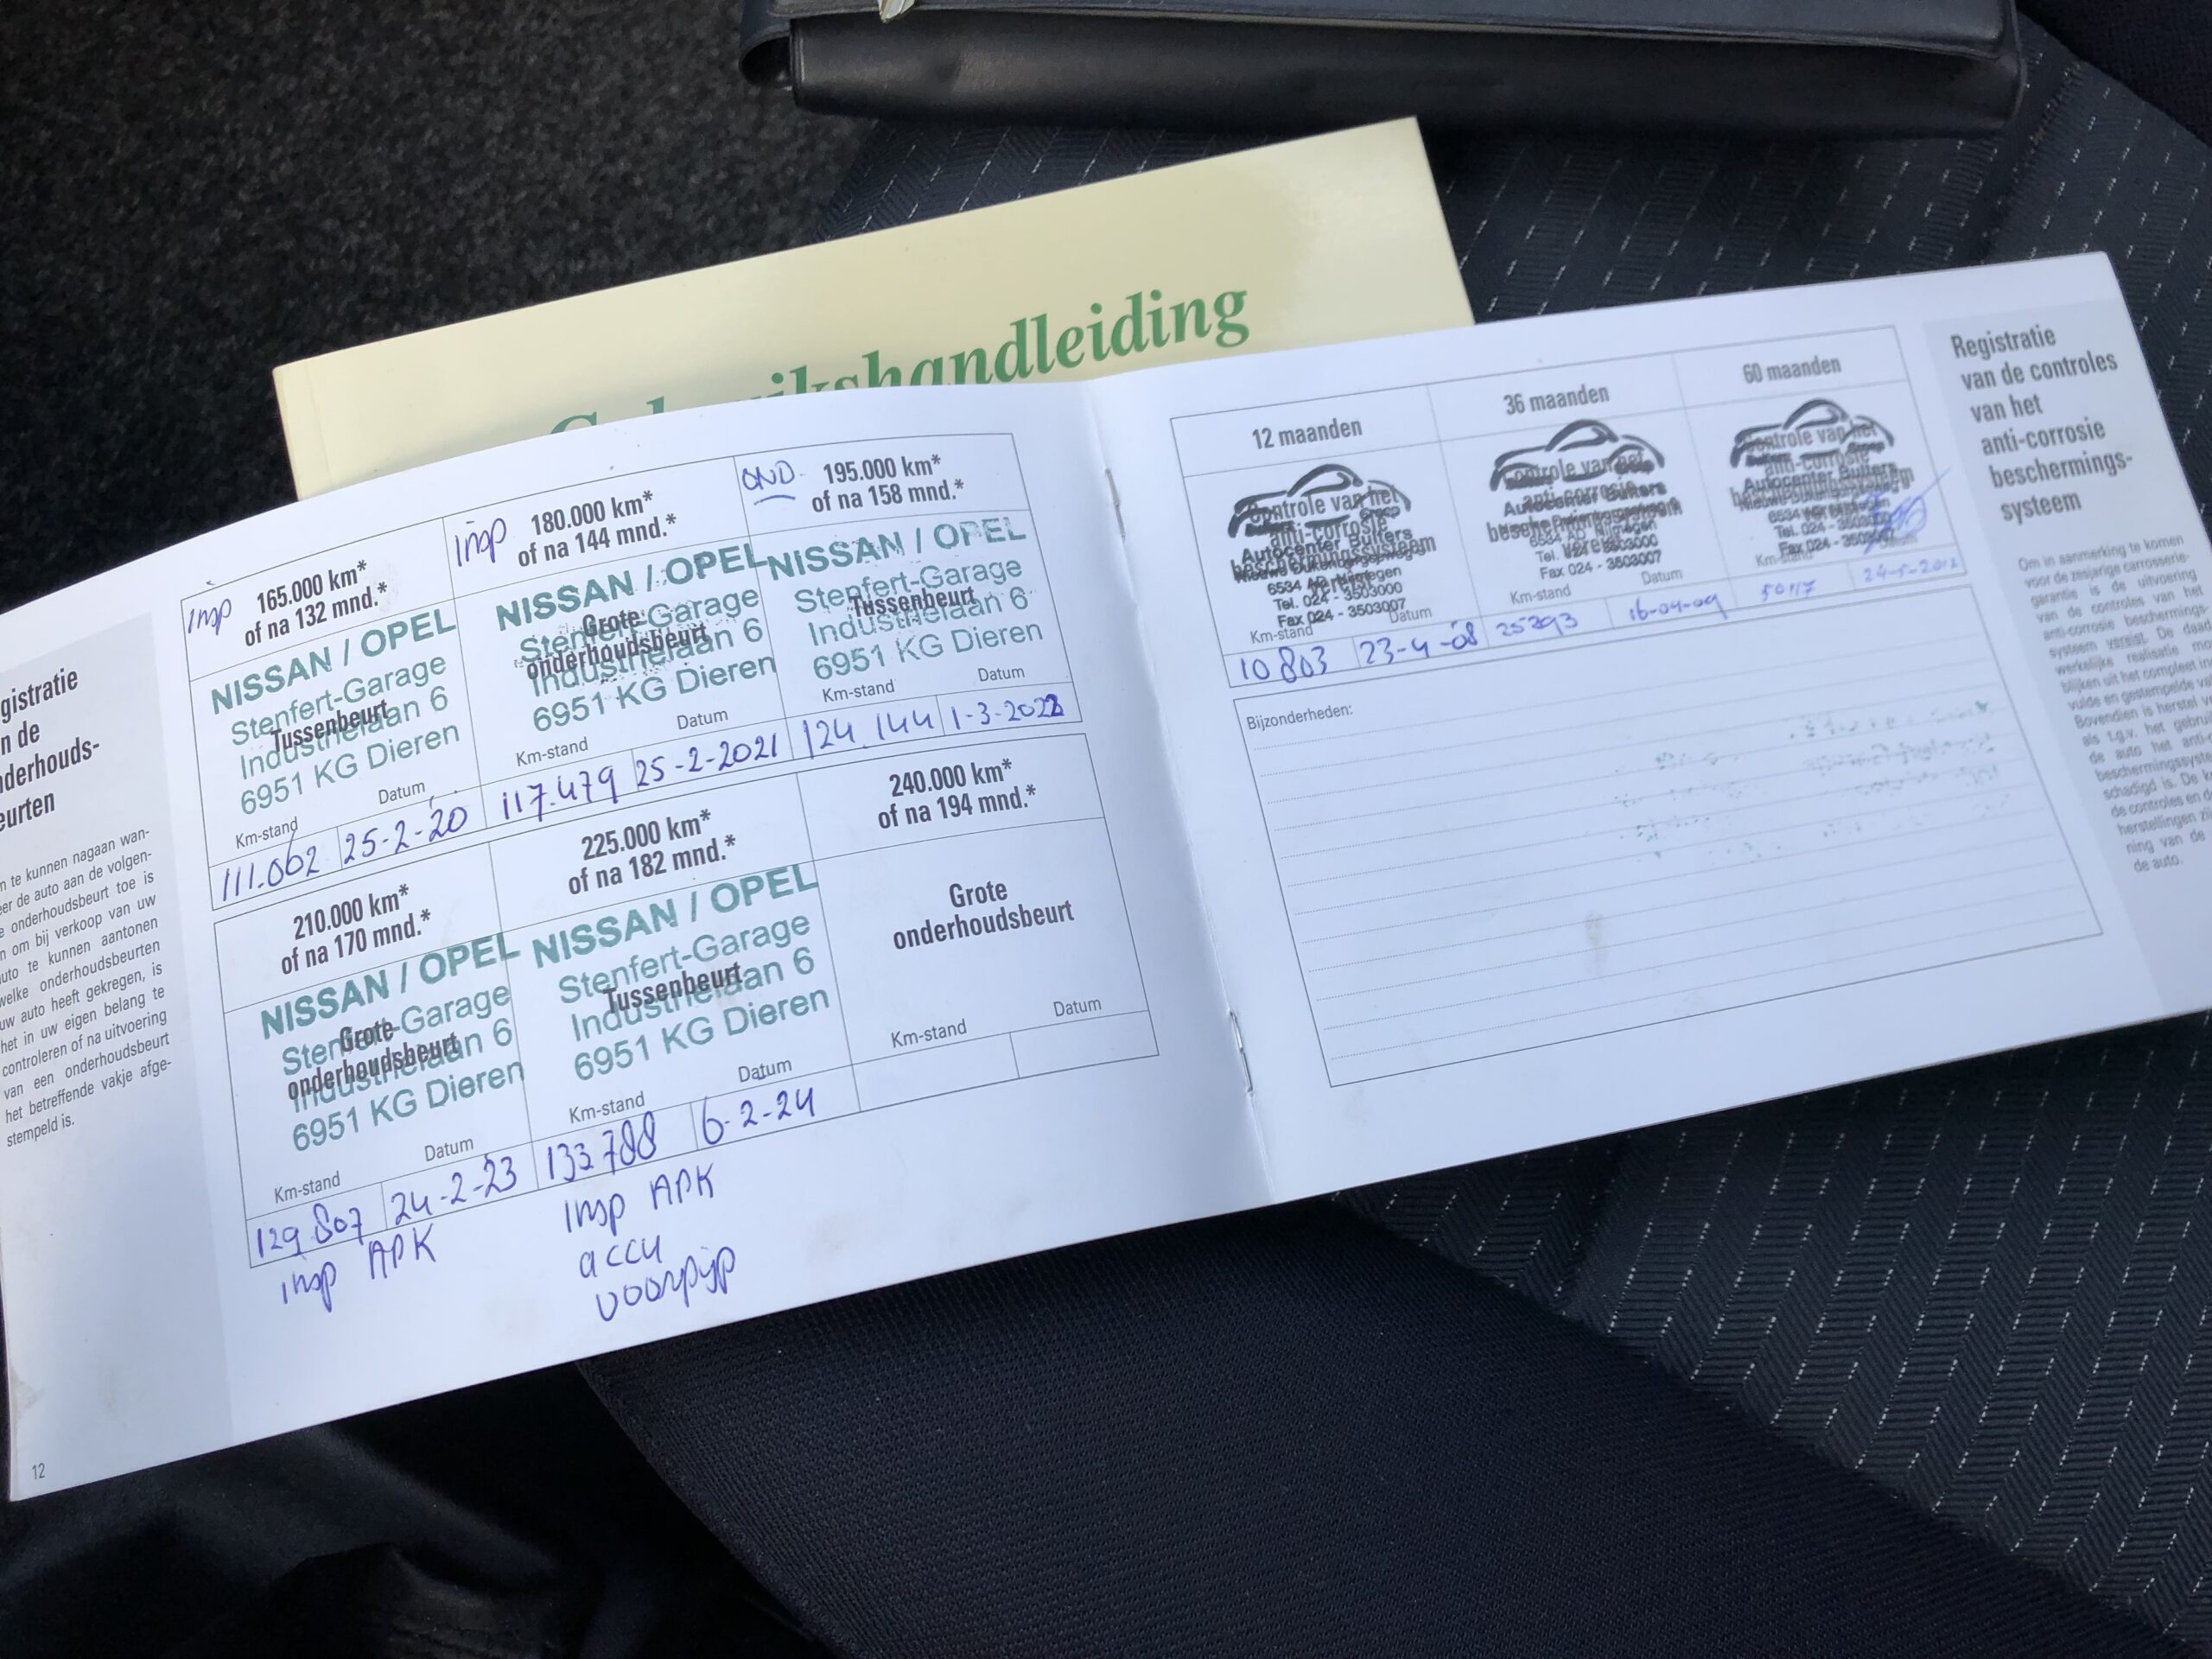 Gebruikshandleiding
gistratie
n de
nderhouds-
eurten
n te kunnen nagaan wan-
eer de auto aan de volgen-
e onderhoudsbeurt toe is
n om bij verkoop van uw
uto te kunnen aantonen
welke onderhoudsbeurten
uw auto heeft gekregen, is
het in uw eigen belang te
controleren of na uitvoering
van een onderhoudsbeurt
het betreffende vakje afge-
stempeld is.
12
insp 165.000 km*
of na 132 mnd.*
NISSAN / OPEL
Stenfert-Garage
Tussenbeurt
Industrielaan 6
6951 KG Dieren
Km-stand Datum
111.062 25-2-20
insp 180.000 km*
of na 144 mnd.*
NISSAN / OPEL
Stenfert-Garage
Grote
onderhoudsbeurt
Industrielaan 6
6951 KG Dieren
Km-stand Datum
117.479 25-2-2021
OND. 195.000 km*
of na 158 mnd.*
NISSAN / OPEL
Stenfert-Garage
Tussenbeurt
Industrielaan 6
6951 KG Dieren
Km-stand Datum
124.144 1-3-2022
210.000 km*
of na 170 mnd.*
NISSAN / OPEL
Stenfert-Garage
Grote
onderhoudsbeurt
Industrielaan 6
6951 KG Dieren
Km-stand Datum
129.807 24-2-23
insp APK
225.000 km*
of na 182 mnd.*
NISSAN / OPEL
Stenfert-Garage
Tussenbeurt
Industrielaan 6
6951 KG Dieren
Km-stand Datum
133788 6-2-24
insp APK
accu
voorpijp
240.000 km*
of na 194 mnd.*
Grote
onderhoudsbeurt
Km-stand Datum
12 maanden
Controle van het
anti-corrosie
Autocenter Bulters
beschermingssysteem
6534 AD Nijmegen
Tel. 024 - 3503000
Fax 024 - 3503007
Km-stand Datum
10803 23-4-08
36 maanden
Controle van het
anti-corrosie
Autocenter Bulters
6534 AD Nijmegen
Tel. 024 - 3503000
Fax 024 - 3503007
Km-stand Datum
25293 16-04-09
60 maanden
Controle van het
anti-corrosie
Autocenter Bulters
Tel. 024 - 3503000
Fax 024 - 3503007
Km-stand Datum
50117 24-5-2012
Bijzonderheden:
Registratie
van de controles
van het
anti-corrosie
beschermings-
systeem
Om in aanmerking te komen
voor de zesjarige carrosserie-
garantie is de uitvoering
van de controles van het
anti-corrosie beschermings-
systeem vereist. De daad
werkelijke realisatie mo
blijken uit het compleet in
vulde en gestempelde va
Bovendien is herstel v
als t.g.v. het gebru
de auto het anti-c
beschermingssyste
schadigd is. De k
de controles en d
herstellingen zi
ning van de
de auto.